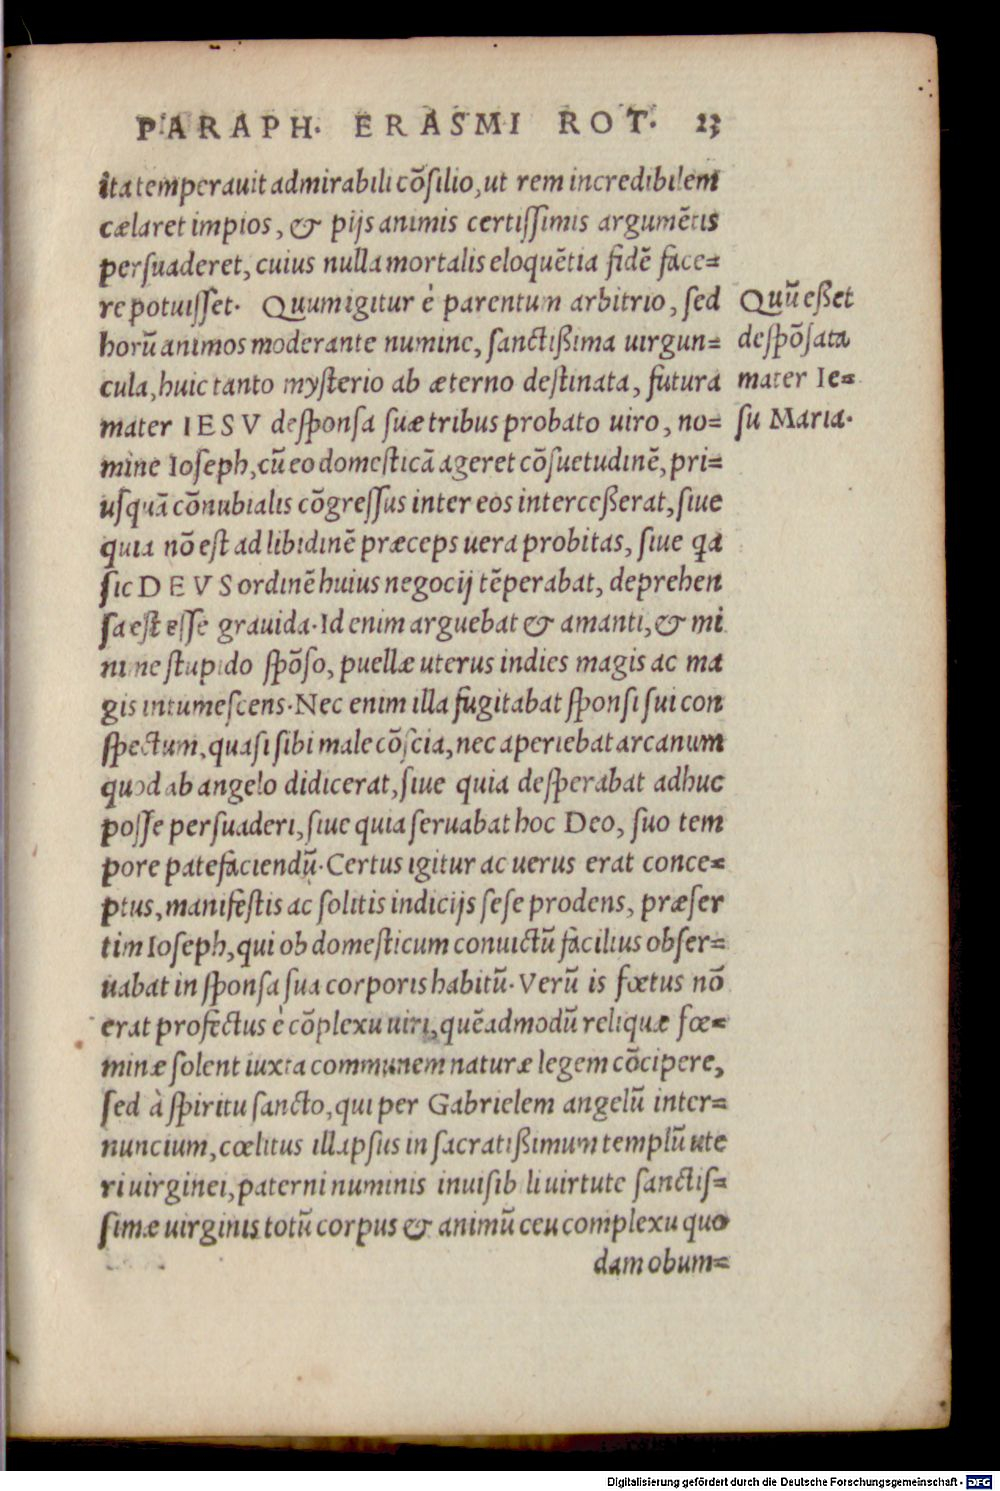 PARAPH. ERASMI ROT. 23
ita temperauit admirabili cõsilio, ut rem incredibilem
cælaret impios, & pijs animis certissimis argumẽtis
persuaderet, cuius nulla mortalis eloquẽtia fidẽ face=
re potuisset. Quum igitur è parentum arbitrio, sed
horũ animos moderante numine, sanctißima uirgun=
cula, huic tanto mysterio ab æterno destinata, futura
mater IESV desponsa suæ tribus probato uiro, no=
mine Ioseph, cũ eo domesticã ageret cõsuetudinẽ, pri=
usquã cõnubialis cõgressus inter eos interceßerat, siue
quia nõ est ad libidinẽ præceps uera probitas, siue qa
sic DEVS ordinẽ huius negocij tẽperabat, deprehen
sa est esse grauida. Id enim arguebat & amanti, & mi
nime stupido spõso, puellæ uterus indies magis ac ma
gis intumescens. Nec enim illa fugitabat sponsi sui con
spectum, quasi sibi male cõscia, nec aperiebat arcanum
quod ab angelo didicerat, siue quia desperabat adhuc
posse persuaderi, siue quia seruabat hoc Deo, suo tem
pore patefaciendũ. Certus igitur ac uerus erat conce=
ptus, manifestis ac solitis indicijs sese prodens, præser
tim Ioseph, qui ob domesticum conuictũ facilius obser=
uabat in sponsa sua corporis habitũ. Verũ is fœtus nõ
erat profectus è cõplexu uiri, quẽadmodũ reliquæ fœ=
minæ solent iuxta communem naturæ legem cõcipere,
sed à spiritu sancto, qui per Gabrielem angelũ inter=
nuncium, cœlitus illapsus in sacratißimum templũ ute
ri uirginei, paterni numinis inuisib li uirtute sanctis=
simæ uirginis totũ corpus & animũ ceu complexu quo
dam obum=
Quũ eßet
despõsata
mater Ie=
su Maria.
Digitalisierung gefördert durch die Deutsche Forschungsgemeinschaft - DFG